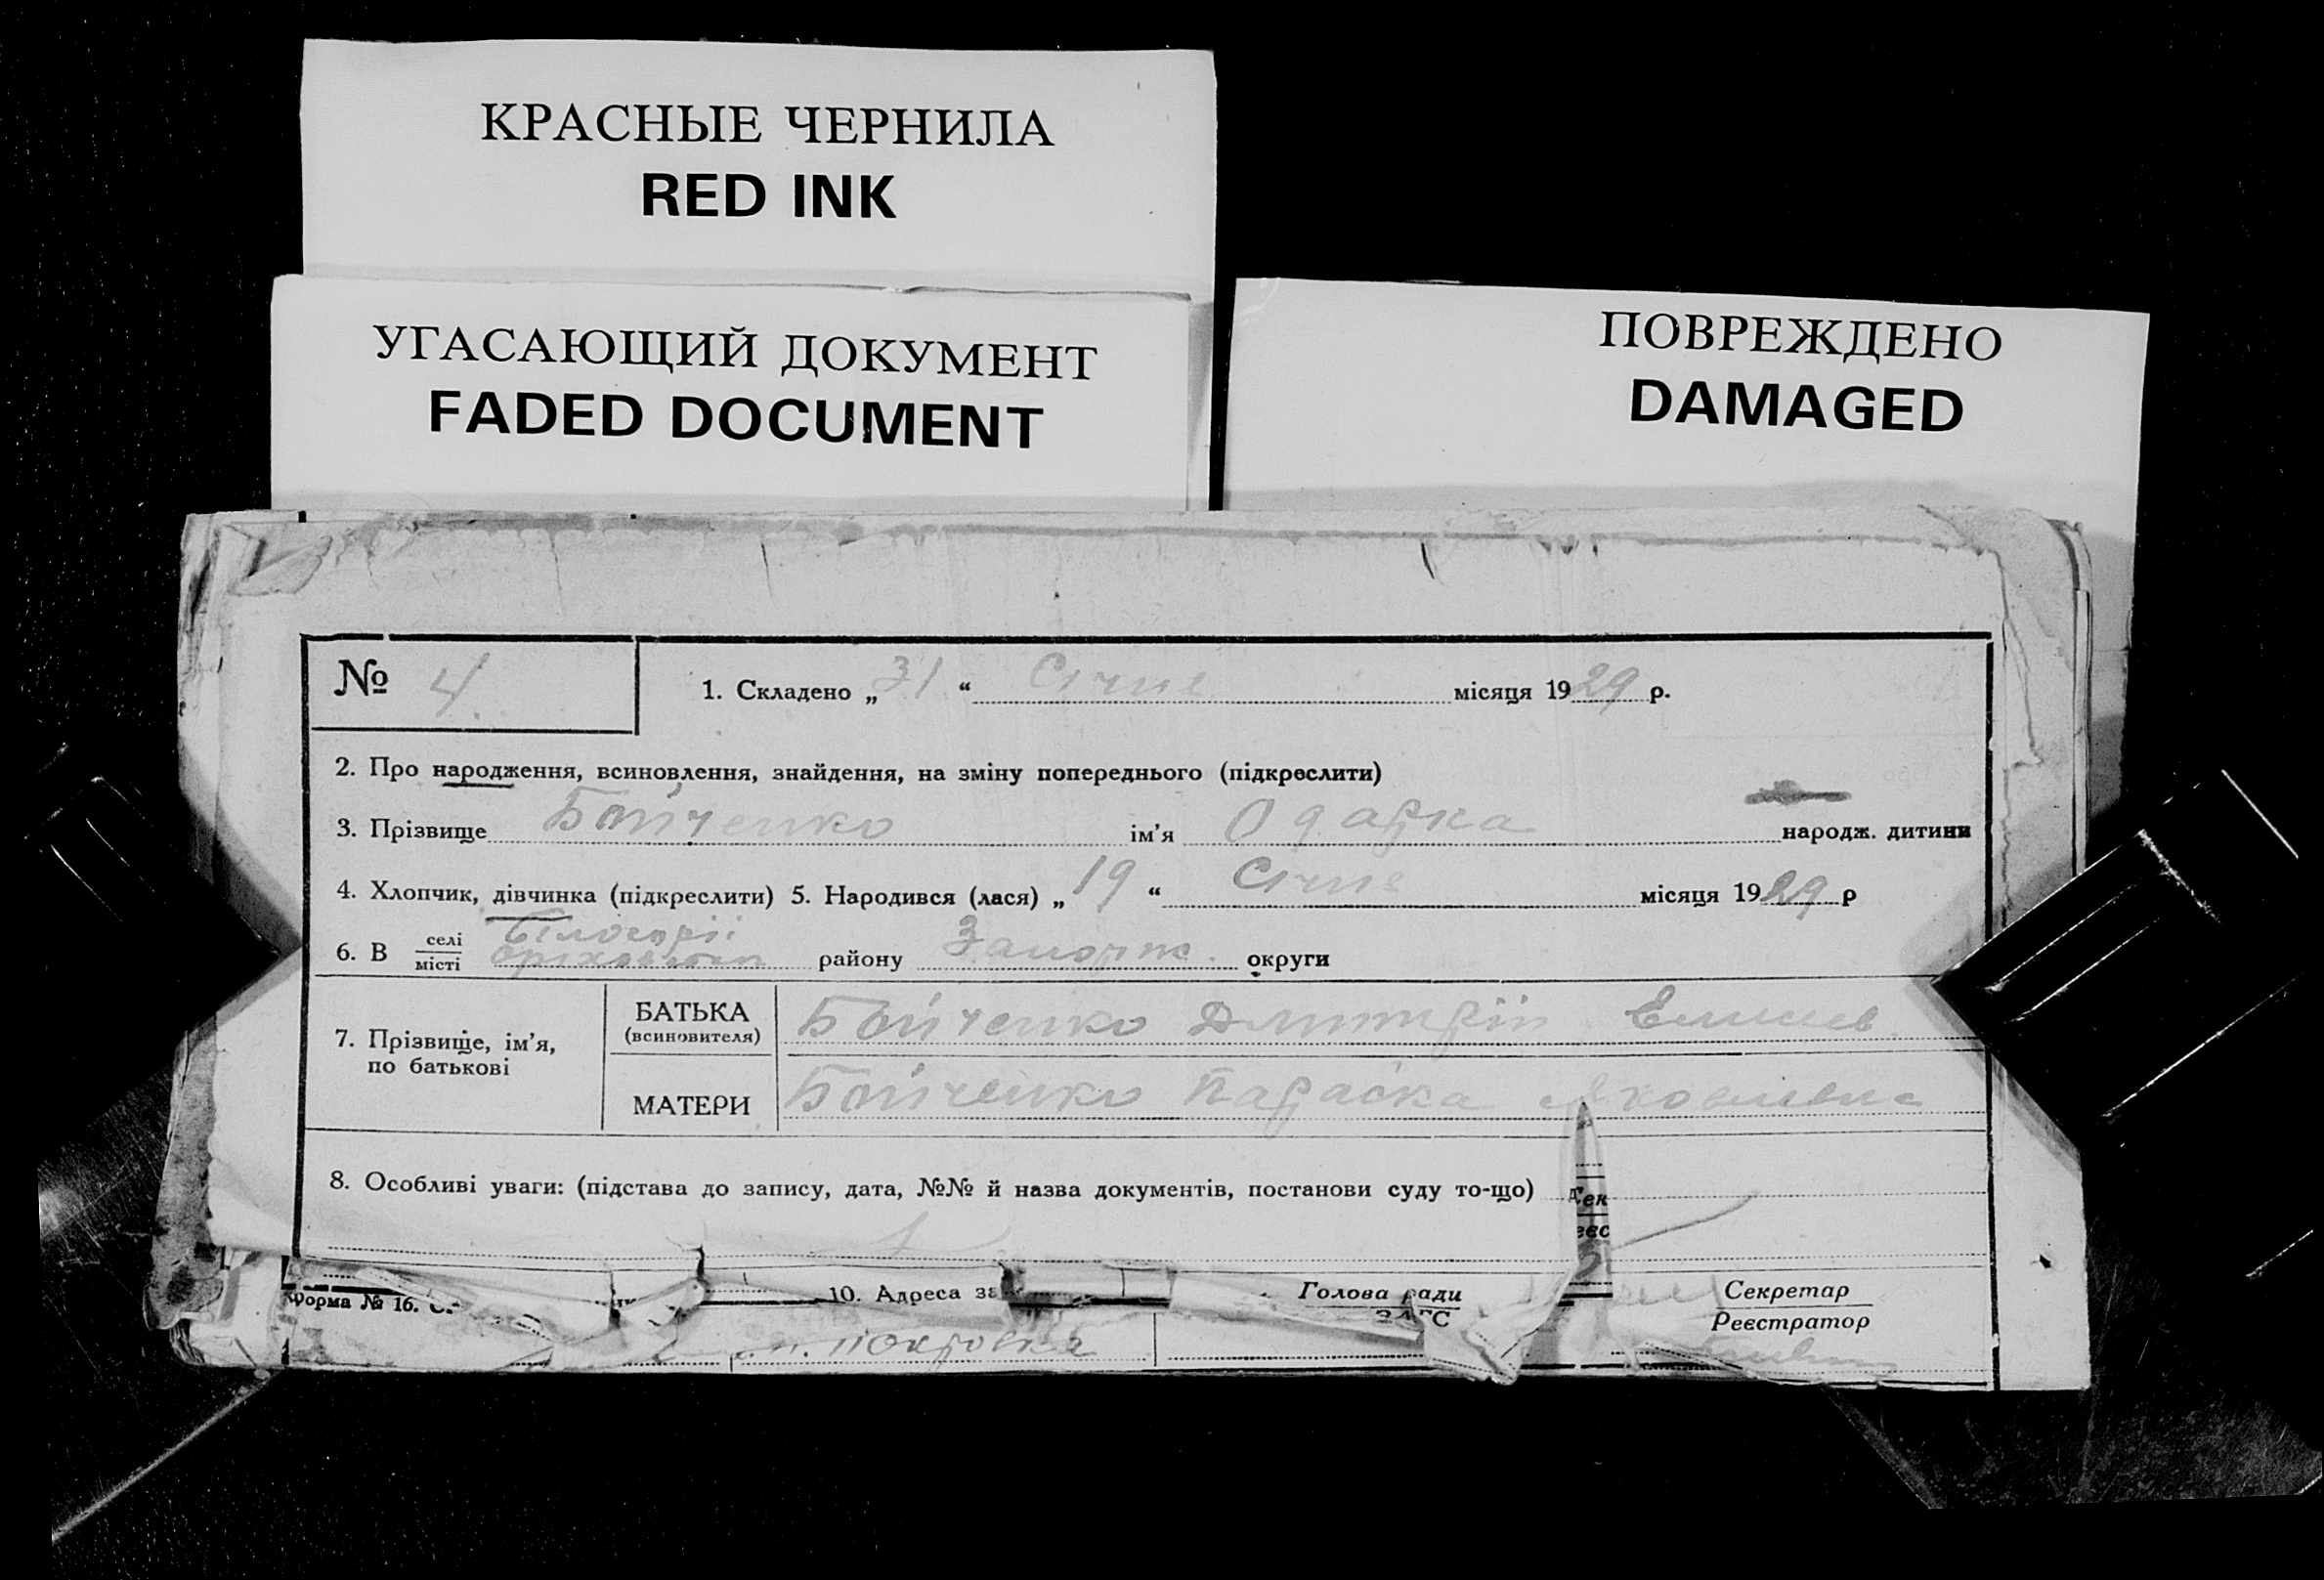 КРАСНЫЕ ЧЕРНИЛА
RED INK
УГАСАЮЩИЙ ДОКУМЕНТ
FADED DOCUMENT
ПОВРЕЖДЕНО
DAMAGED
№ 4
1. Складено „ 31 “ Січня місяця 1929 р.
2. Про народження, всиновлення, знайдення, на зміну попереднього (підкреслити)
3. Прізвище Бойченко ім’я Одарка народж. дитини
4. Хлопчик, дівчинка (підкреслити) 5. Народився (лася) „ 19 “ Січня місяця 1929 р
6. В селі
місті
району Запоріж. округи
7. Прізвище, ім’я,
по батькові
БАТЬКА
(всиновителя)
Бойченко Дмитрій
МАТЕРИ
Бойченко Параска Яковлевна
8. Особливі уваги: (підстава до запису, дата, №№ й назва документів, постанови суду то-що)
Форма № 16.
10. Адреса за
Голова ради
ЗАГС
Секретар
Реєстратор
Покровка